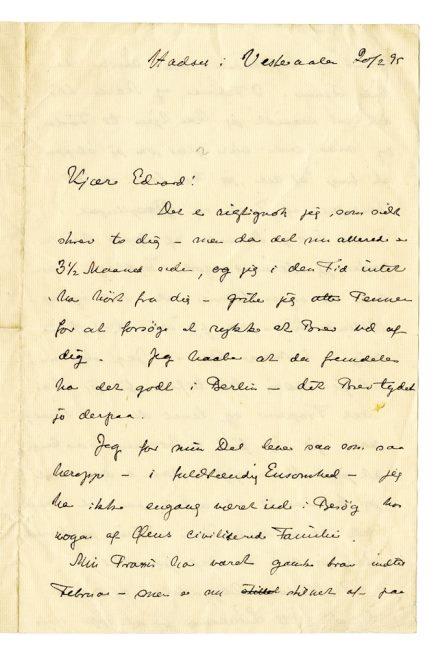 Hadsel i Vesteraalen 20/2 95
Kjære Edvard!
Det er rigtignok jeg, som sidst
skrev to dig – men da det nu allerede er
3 1/2 Maaned siden, og jeg i den Tid intet
har hørt fra dig – griber jeg atter Pennen
for at forsøge at rykke et Brev ud af
dig. Jeg haaber at du fremdeles
har det godt i Berlin – dit Brev tydet
jo derpaa.
Jeg for min Del lever saa som saa
heroppe – i fuldstændig Ensomhed – jeg
har ikke engang været inde i Besøg hos
nogen af Øens civiliserede Familier.
Min Praxis har været ganske bra indtil
Februar – men er nu stilnet af – paa